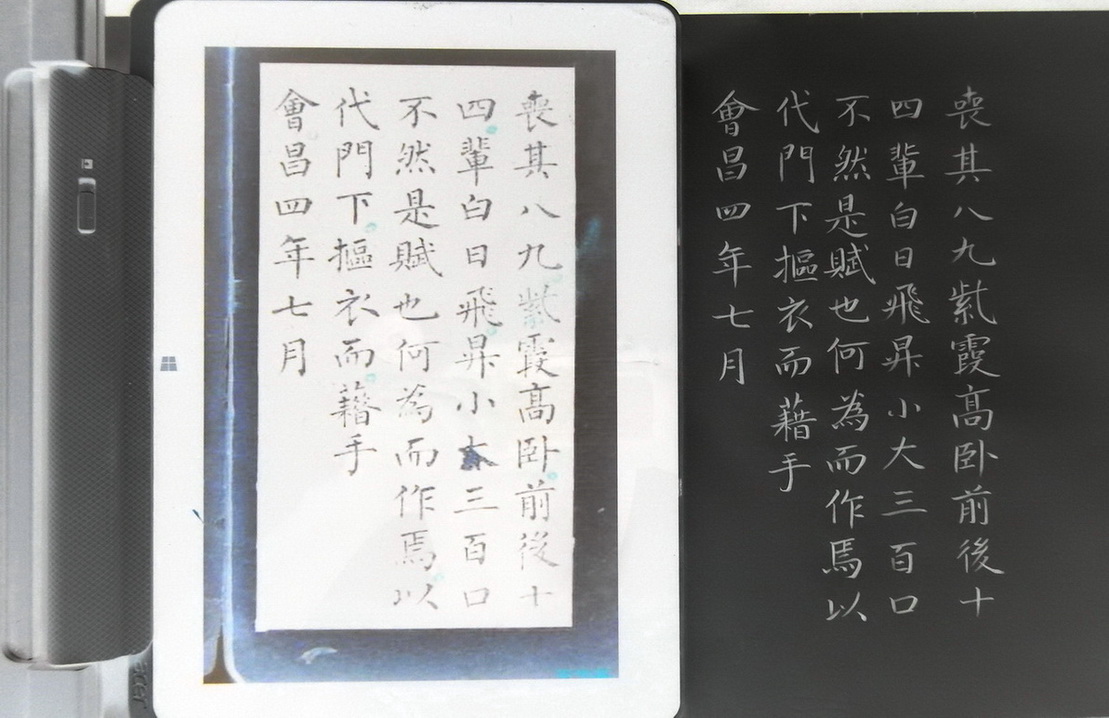 喪其八九紫霞高卧前後十
四輩白日飛昇小大三百口
不然是賦也何為而作焉以
代門下摳衣而藉手
會昌四年七月
喪其八九紫霞高卧前後十
四輩白日飛昇小大三百口
不然是賦也何為而作焉以
代門下摳衣而藉手
會昌四年七月
acer